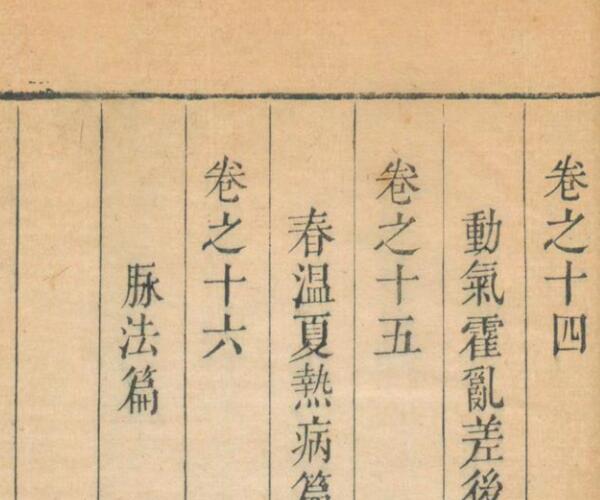 卷之十四
動氣霍亂差後
卷之十五
春温夏熱病篇
卷之十六
脉法篇